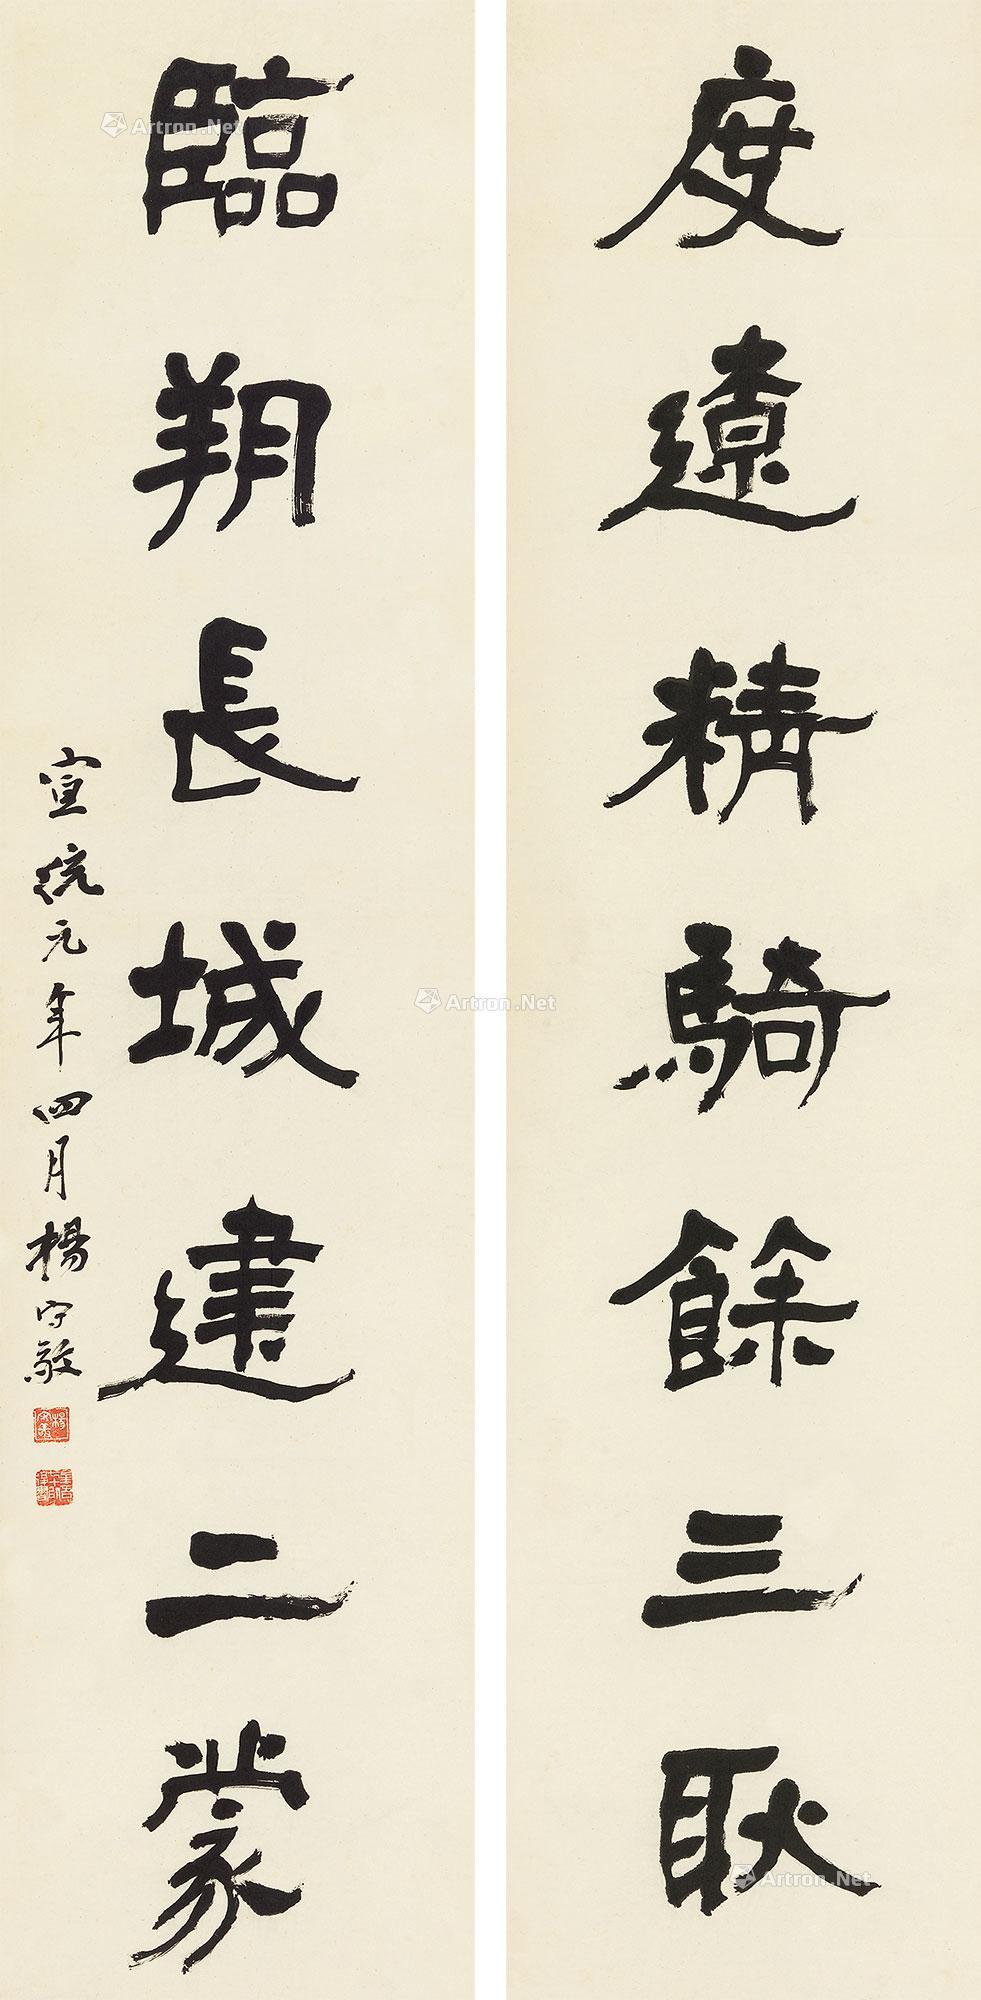 度遼精騎餘三耿
臨朔長城建二蒙
宣統元年四月楊守敬
Artron.Net
Artron.Net
Artron.Net